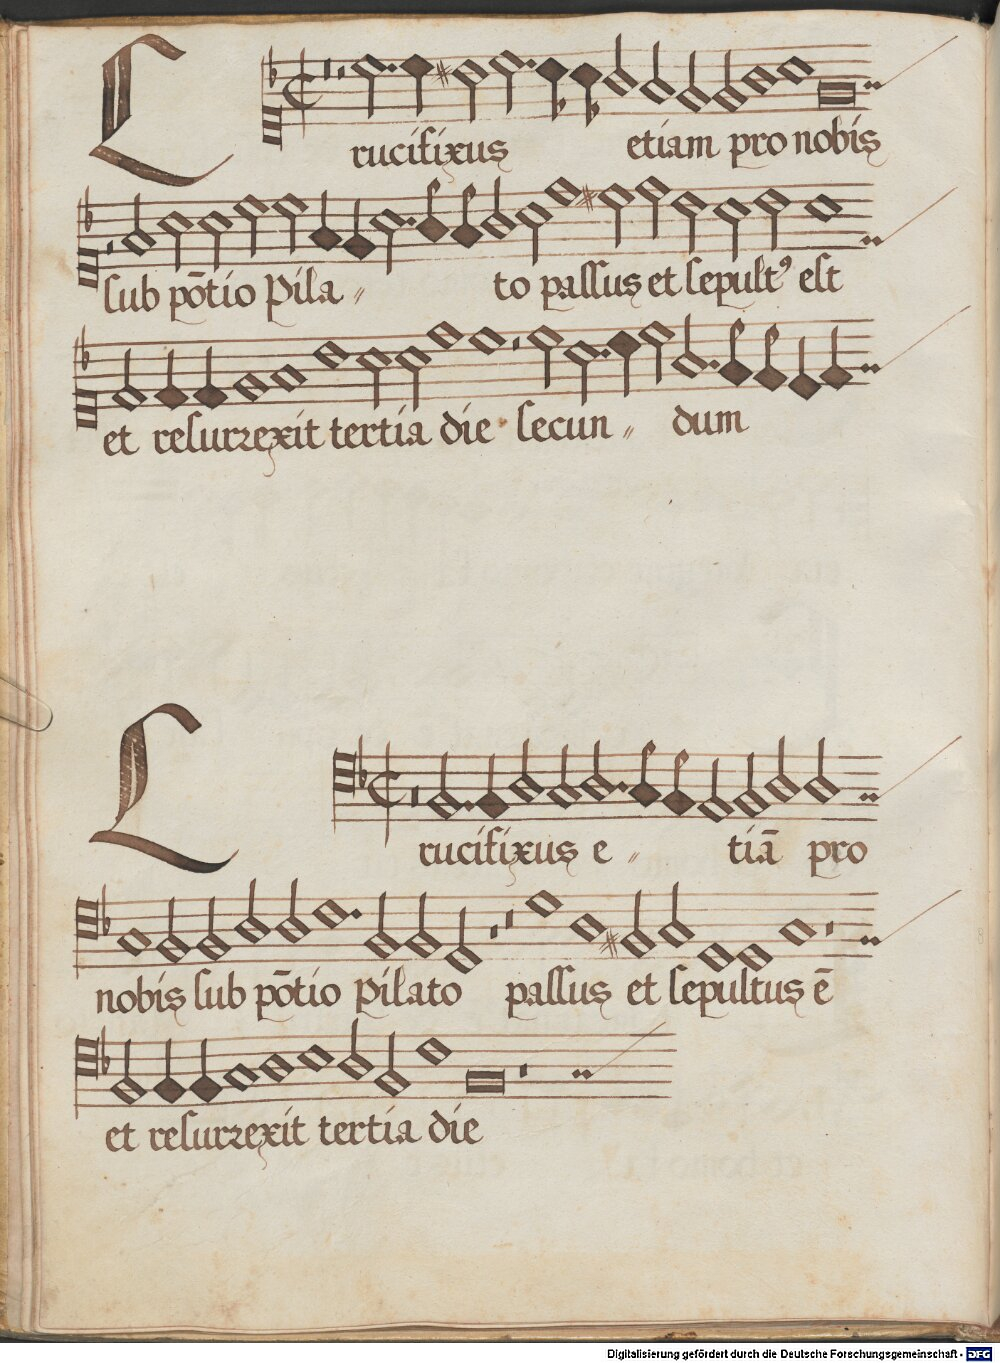 Crucifixus etiam pro nobis
sub põtio Pila〃to passus et sepultꝰ est
et resurrexit tertia die secun〃dum
Crucifixus e〃tiã pro
nobis sub põtio Pilato passus et sepultus ẽ
et resurrexit tertia die
Digitalisierung gefördert durch die Deutsche Forschungsgemeinschaft - DFG